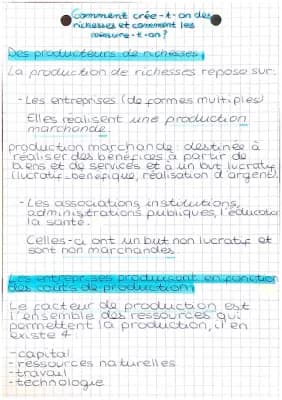 Comment crée-t-on des
richesses et comment les
mesure-t-on ?
Des producteurs de richesses
La production de richesses repose sur:
- Les entreprises (de formes multiples)
Elles réalisent une production
marchande.
production marchande: destinée à
réaliser des bénéfices à partir de
biens et de services et à un but lucratif
(lucratif=bénéfique, réalisation d'argent).
- Les associations, institutions,
administrations publiques, l'éducation
la santé.
Celles-ci ont un but non lucratif et
sont non marchandes.
Les entreprises produisent en fonction
des coûts de production
Le facteur de production est
l'ensemble des ressources qui
permettent la production, il en
existe 4:
- capital
- ressources naturelles
- travail
- technologie